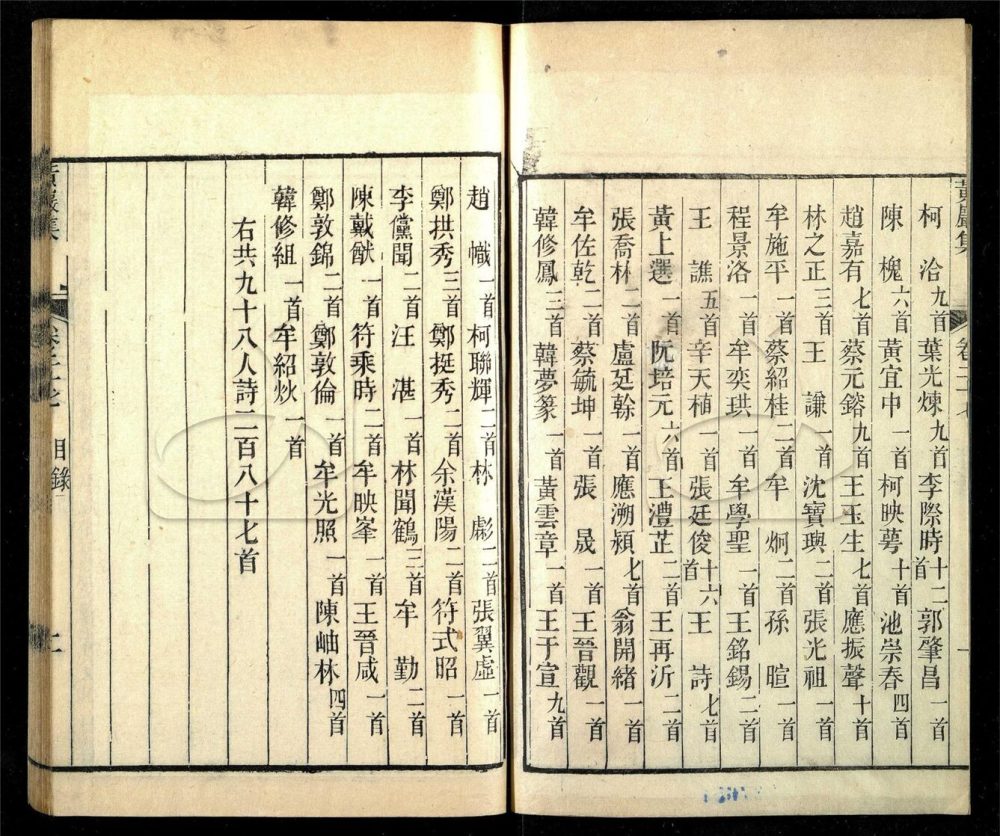 柯洽九首葉光煉九首李際時十二首郭肇昌一首
陳槐六首黃宜中一首柯映萼十首池崇春四首
趙嘉有七首蔡元鎔九首王玉生七首應振聲十首
林之正三首王謙一首沈寶璵一首張光祖一首
牟施平一首蔡紹桂二首牟炯二首孫暄一首
程景洛一首牟奕珙一首牟學聖一首王銘錫二首
王譙五首辛天植一首張廷俊十六首王詩七首
黃上選一首阮培元六首王澧芷二首王再沂二首
張喬林二首盧廷榦一首應溯潁七首翁開緒一首
牟佐乾二首蔡毓坤一首張晟一首王晉觀一首
韓修鳳三首韓夢篆一首黃雲章一首王于宣九首
黃巖集
目錄
趙幟一首柯聯輝二首林彪二首張翼虛一首
鄭拱秀三首鄭挺秀二首余漢陽二首符式昭一首
李黨聞二首汪湛一首林聞鶴三首牟勤二首
陳戴猷一首符乘時二首牟映峯一首王晉咸一首
鄭敦錦二首鄭敦倫一首牟光照一首陳岫林四首
韓修組一首牟紹炏一首
右共九十八人詩二百八十七首